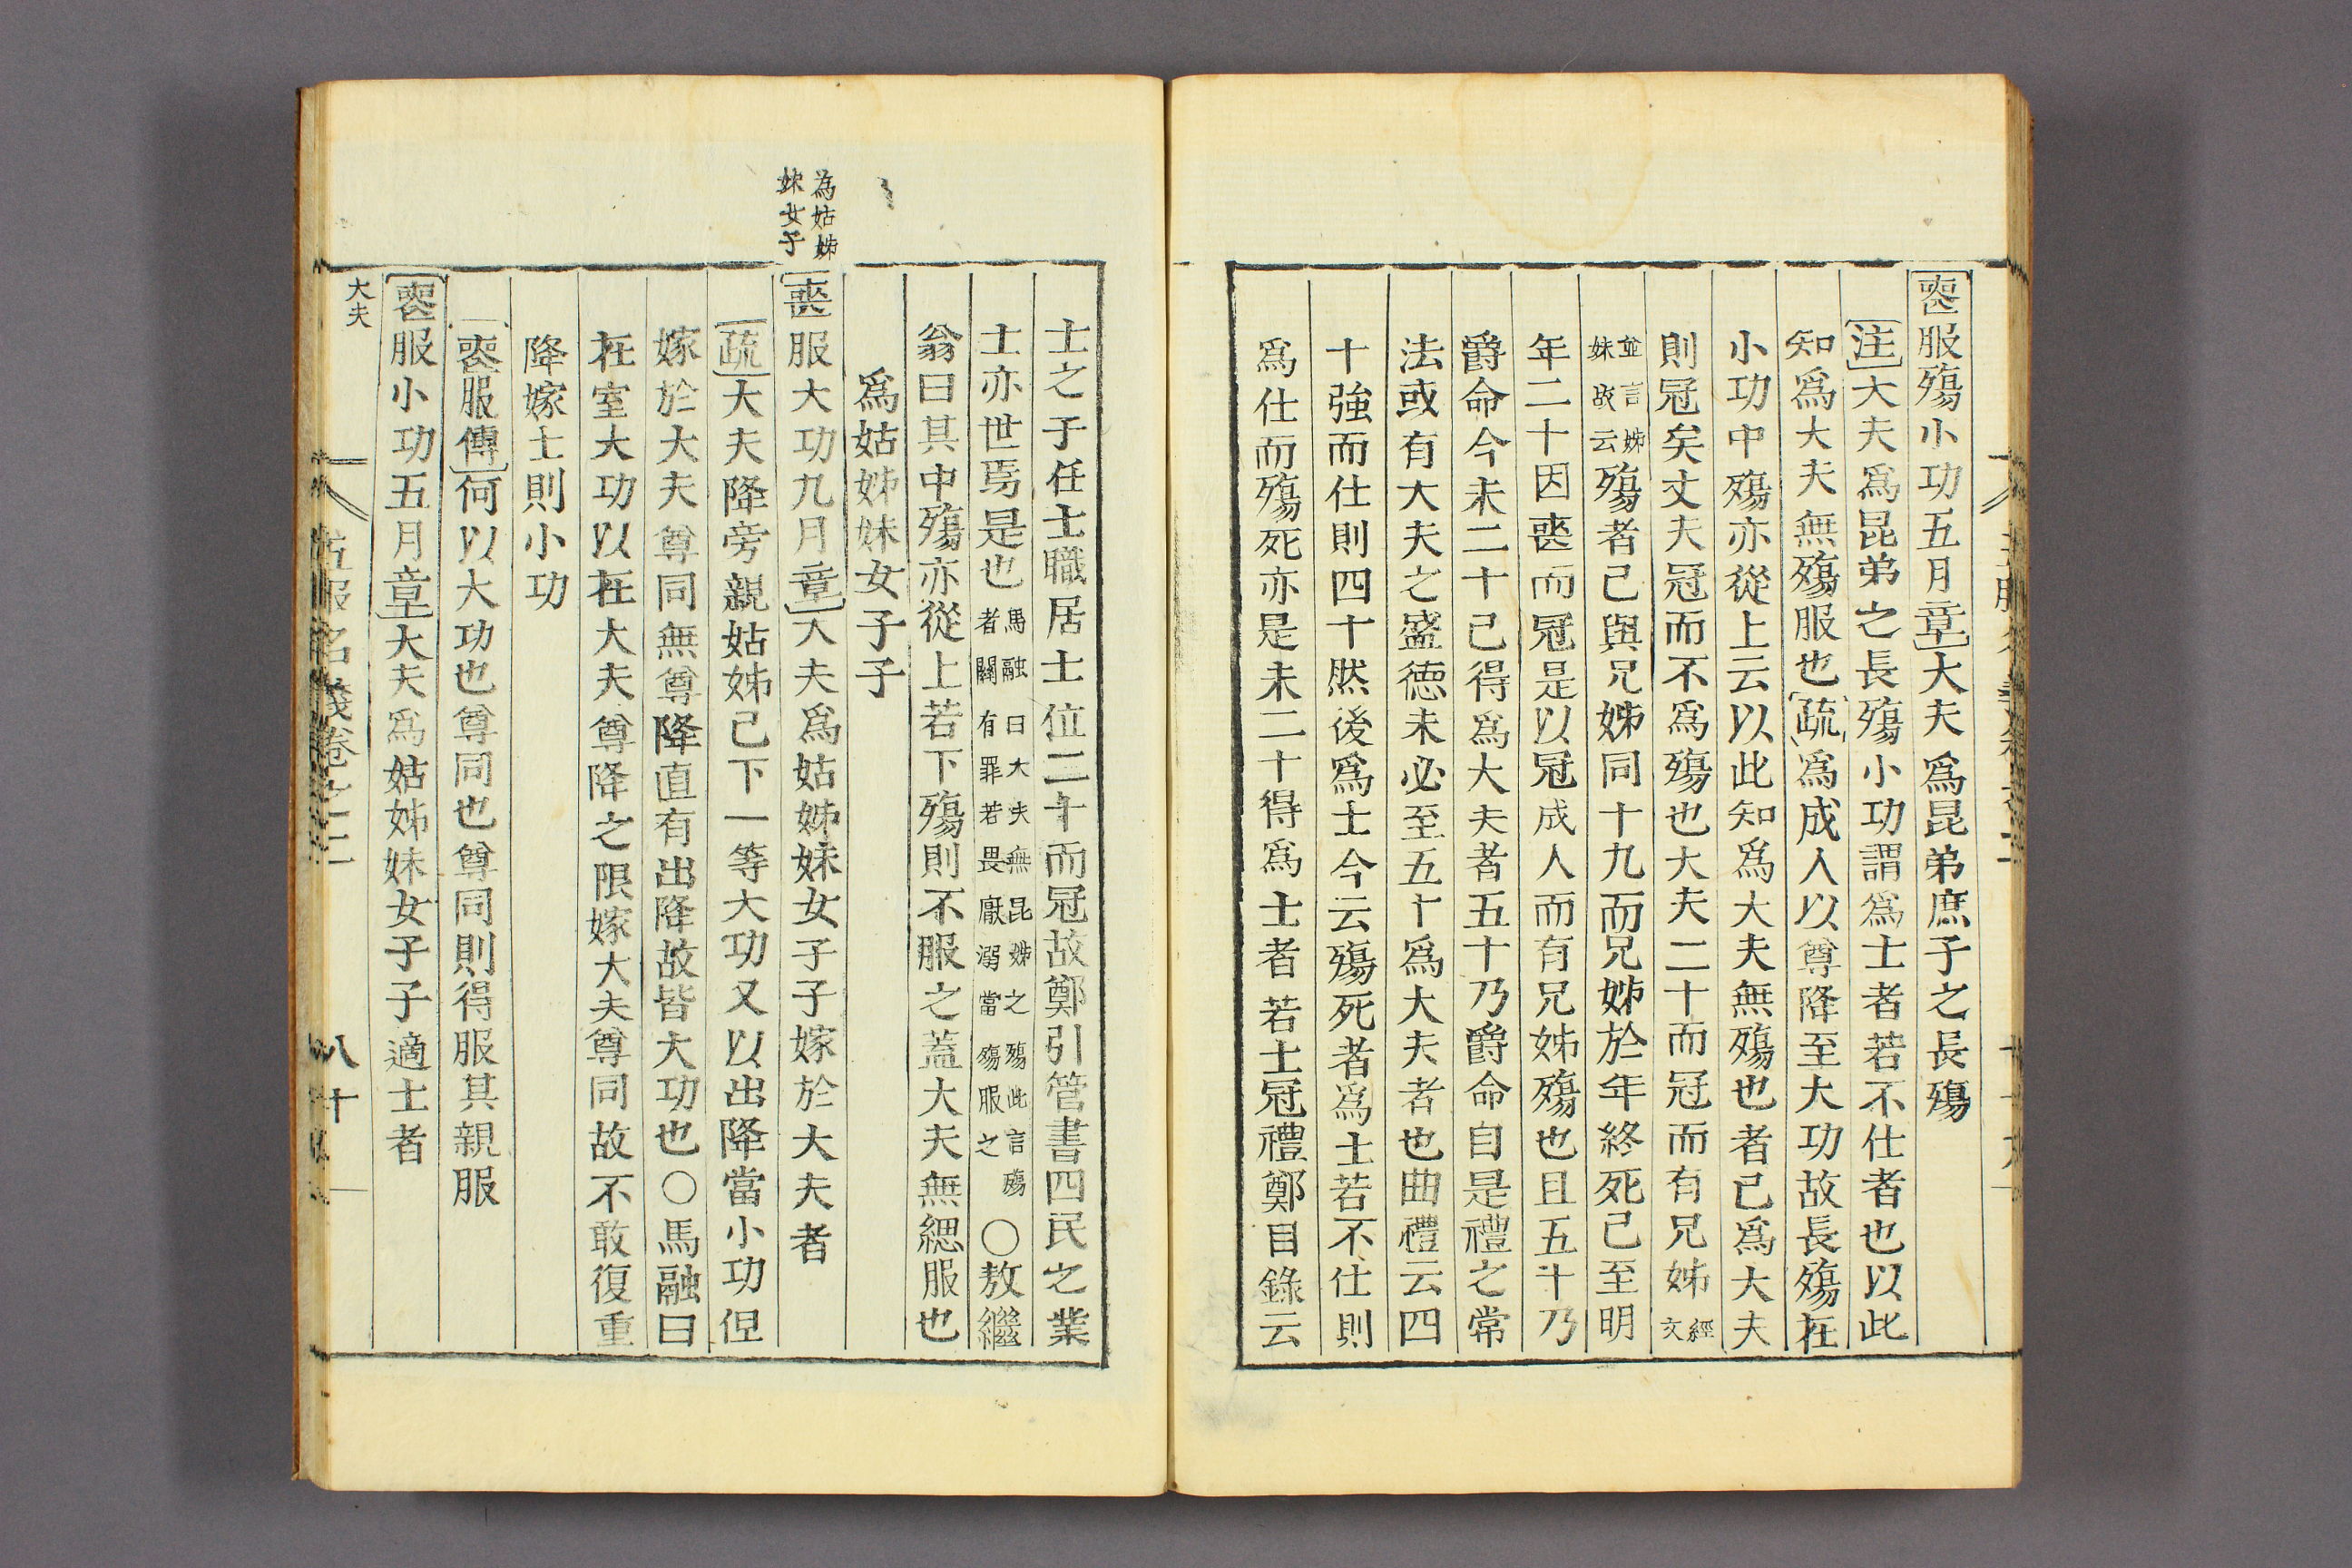 喪服殤小功五月章大夫爲昆弟庶子之長殤
注大夫爲昆弟之長殤小功謂爲士者若不仕者也以此
知爲大夫無殤服也疏爲成人以尊降至大功故長殤在
小功中殤亦從上云以此知爲大夫無殤也者己爲大夫
則冠矣丈夫冠而不爲殤也大夫二十而冠而有兄姊經文
並言姊妹故云殤者己與兄姊同十九而兄姊於年終死己至明
年二十因喪而冠是以冠成人而有兄姊殤也且五十乃
爵命今未二十已得爲大夫者五十乃爵命自是禮之常
法或有大夫之盛德未必至五十爲大夫者也曲禮云四
十強而仕則四十然後爲士今云殤死者爲士若不仕則
爲仕而殤死亦是未二十得爲士者若士冠禮鄭目錄云
士之子任士職居士位二十而冠故鄭引管書四民之業
士亦世焉是也馬融曰大夫無昆姊之殤此言殤者關有罪若畏厭溺當殤服之〇敖繼
翁曰其中殤亦從上若下殤則不服之蓋大夫無緦服也
爲姑姊妹女子子
為姑姊妹女子
喪服大功九月章大夫爲姑姊妹女子子嫁於大夫者
疏大夫降旁親姑姊已下一等大功又以出降當小功但
嫁於大夫尊同無尊降直有出降故皆大功也〇馬融曰
在室大功以在大夫尊降之限嫁大夫尊同故不敢復重
降嫁士則小功
喪服傳何以大功也尊同也尊同則得服其親服
喪服小功五月章大夫爲姑姊妹女子子適士者
大夫
五服名義卷之二
八十